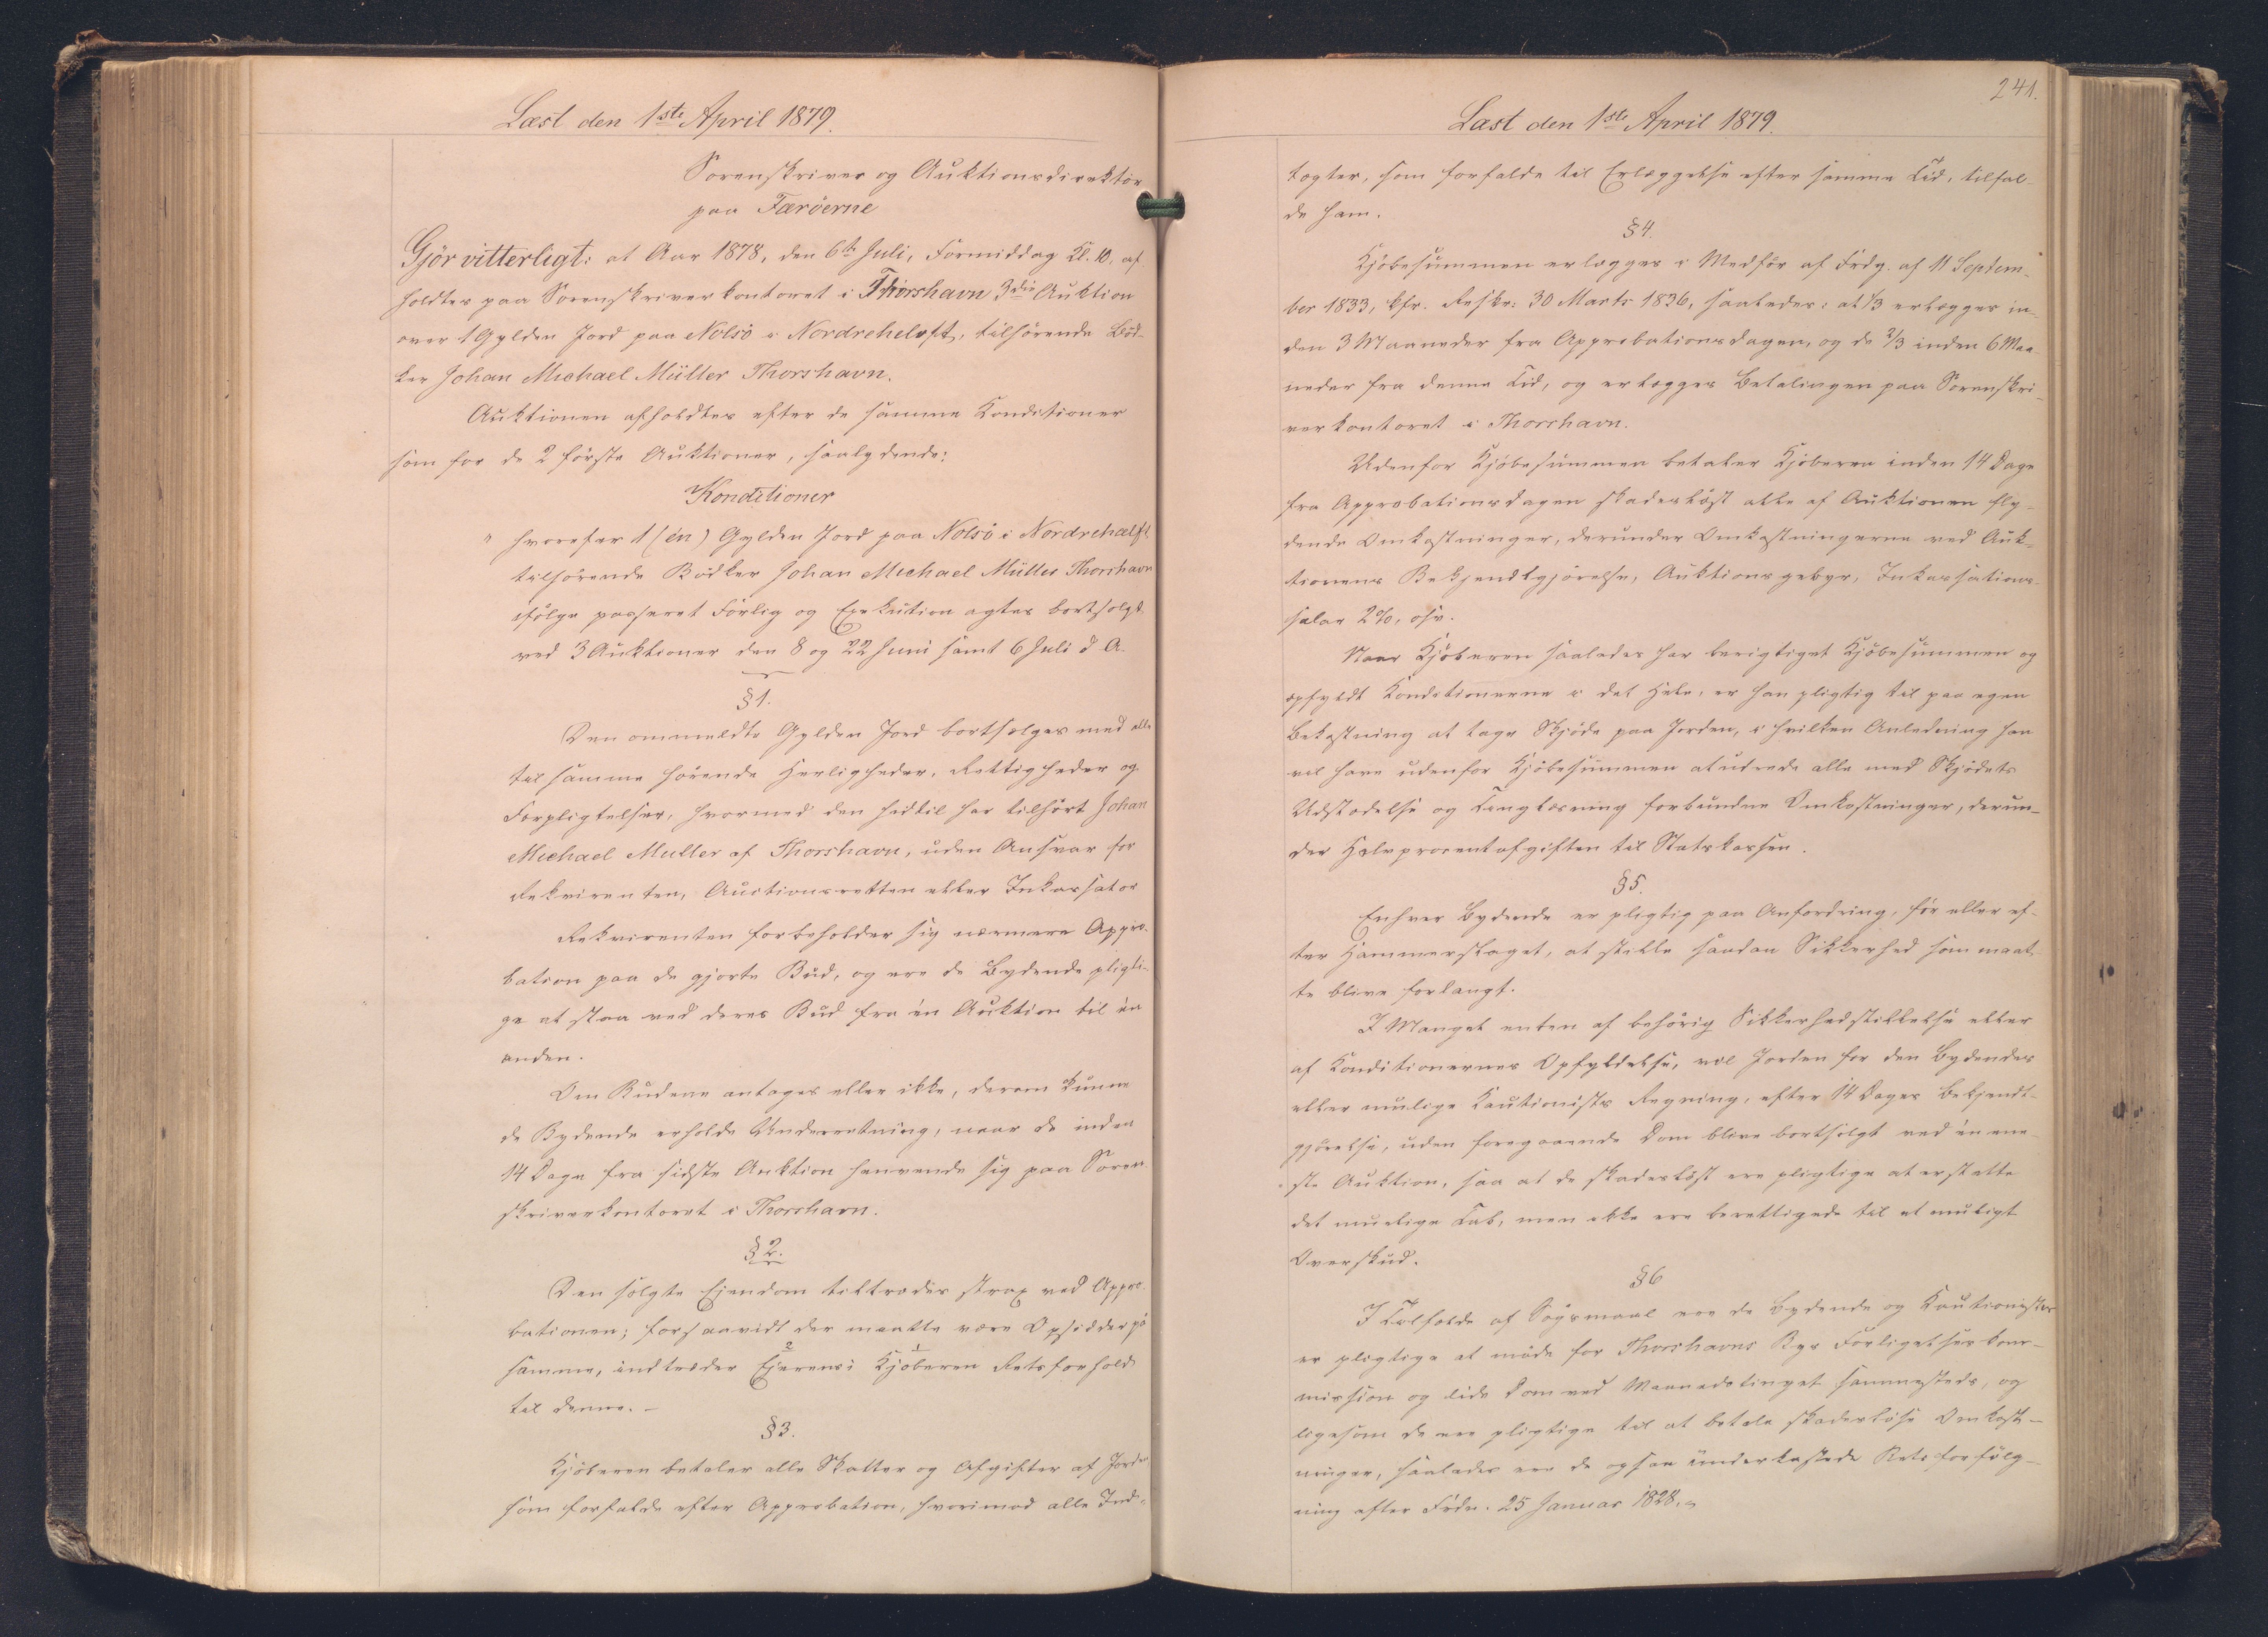 Læst den 1ste April 1879.
Sorenskriver og Auktionsdirektör
paa Færöerne
Gjör vitterligt: at Aar 1878, den 6te Juli, Formiddag Kl. 10, af-
holdtes paa Sorenskriverkontoret i Thorshavn 3die Auktion
over 1 Gylden Jord paa Nolsö i Nordrehelvft, tilhörende Böd-
ker Johan Michael Müller Thorshavn.
Auktionen afholdtes efter de samme Konditioner
som for de 2 förste Auktioner, saalydende:
Konditioner
" hvorefter 1 (én) Gylden Jord paa Nolsö i Nordrehælft
tilhörende Bödker Johan Michael Müller Thorshavn
ifölge passeret Forlig og Exekution agtes bortsolgt
ved 3 Auktioner den 8 og 22 Juni samt 6 Juli d. A.
§1.
Den ommeldte Gylden Jord bortsælges med alle
til samme hörende Herligheder, Rettigheder og
Forpligtelser, hvormed den hidtil har tilhört Johan
Michael Muller af Thorshavn, uden Ansvar for
Rekvirenten, Auctionsretten eller Inkassator
Rekvirenten forbeholder sig nærmere Appro-
bation paa de gjorte Bud, og ere de Bydende pligti-
ge at staa ved deres Bud fra én Auktion til én
anden.
Om Budene antages eller ikke, derom kunne
de Bydende erholde Underretning, naar de inden
14 Dage fra sidste Auktion henvende sig paa Soren-
skriverkontoret i Thorshavn.
§2.
Den solgte Ejendom tiltrædes strax ved Appro-
bationen; forsaavidt der maatte være Opsidder på
samme, indtræder Ejerens i Kjöberen Retsforhold
2 1
til denne. –
§3.
Kjöberen betaler alle Skatter og Afgifter af Jorden
som forfalde efter Approbation, hvorimod alle Ind-
241.
Læst den 1ste April 1879.
tægter, som forfalde til Erlæggelse efter samme Tid, tilfal-
de ham.
§4.
Kjöbesummen erlægges i Medför af Frdg. af 11 Septem-
ber 1833, kfr. Reskr: 30 Marts 1836, saaledes: at 1/3 erlægges in-
den 3 Maaneder fra Approbationsdagen, og de 2/3 inden 6 Maa-
neder fra denne Tid, og erlægges Betalingen paa Sorenskri-
verkontoret i Thorshavn.
Udenfor Kjöbesummen betaler Kjöberen inden 14 Dage
fra Approbationsdagen skadeslöst alle af Auktionen fly-
dende Omkostninger, derunder Omkostningerne ved Auk-
tionens Bekjendtgjörelse, Auktionsgebyr, Inkassations-
salær 2%, osv.
Naar Kjöberen saaledes har berigtiget Kjöbesummen og
opfyldt Konditionerne i det Hele, er han pligtig til paa egen
Bekostning at tage Skjöde paa Jorden, i hvilken Anledning han
vil have udenfor Kjöbesummen at udrede alle med Skjödets
Udstædelse og Tinglæsning forbundne Omkostninger, derun-
der Halvprocentafgiften til Statskassen.
§5.
Enhver Bydende er pligtig paa Anfordring, för eller ef-
ter Hammerslaget, at stille saadan Sikkerhed som maat-
te blive forlangt.
I Mangel enten af behörig Sikkerhedstillelse eller
af Konditionernes Opfyldelse, vil Jorden for den Bydendes
eller mulige Kautionists Regning, efter 14 Dages Bekjendt-
gjörelse, uden foregaaende Dom blive bortsolgt ved én ene-
ste Auktion, saa at de skadeslöst ere pligtige at erstatte
det muelige Tab, men ikke ere berettigede til et muligt
Overskud.
§6
I Tilfælde af Sögsmaal ere de Bydende og Kautionister
er pligtige at möde for Thorshavns Byes Forligelseskom-
mission og lide Dom ved Maanedstinget sammesteds, og
ligesom de ere pligtige til at betale skadeslöse Omkost-
ninger, saaledes ere de ogsaa underkastede Retsforfölg-
ning efter Frdn. 25 Januar 1828.